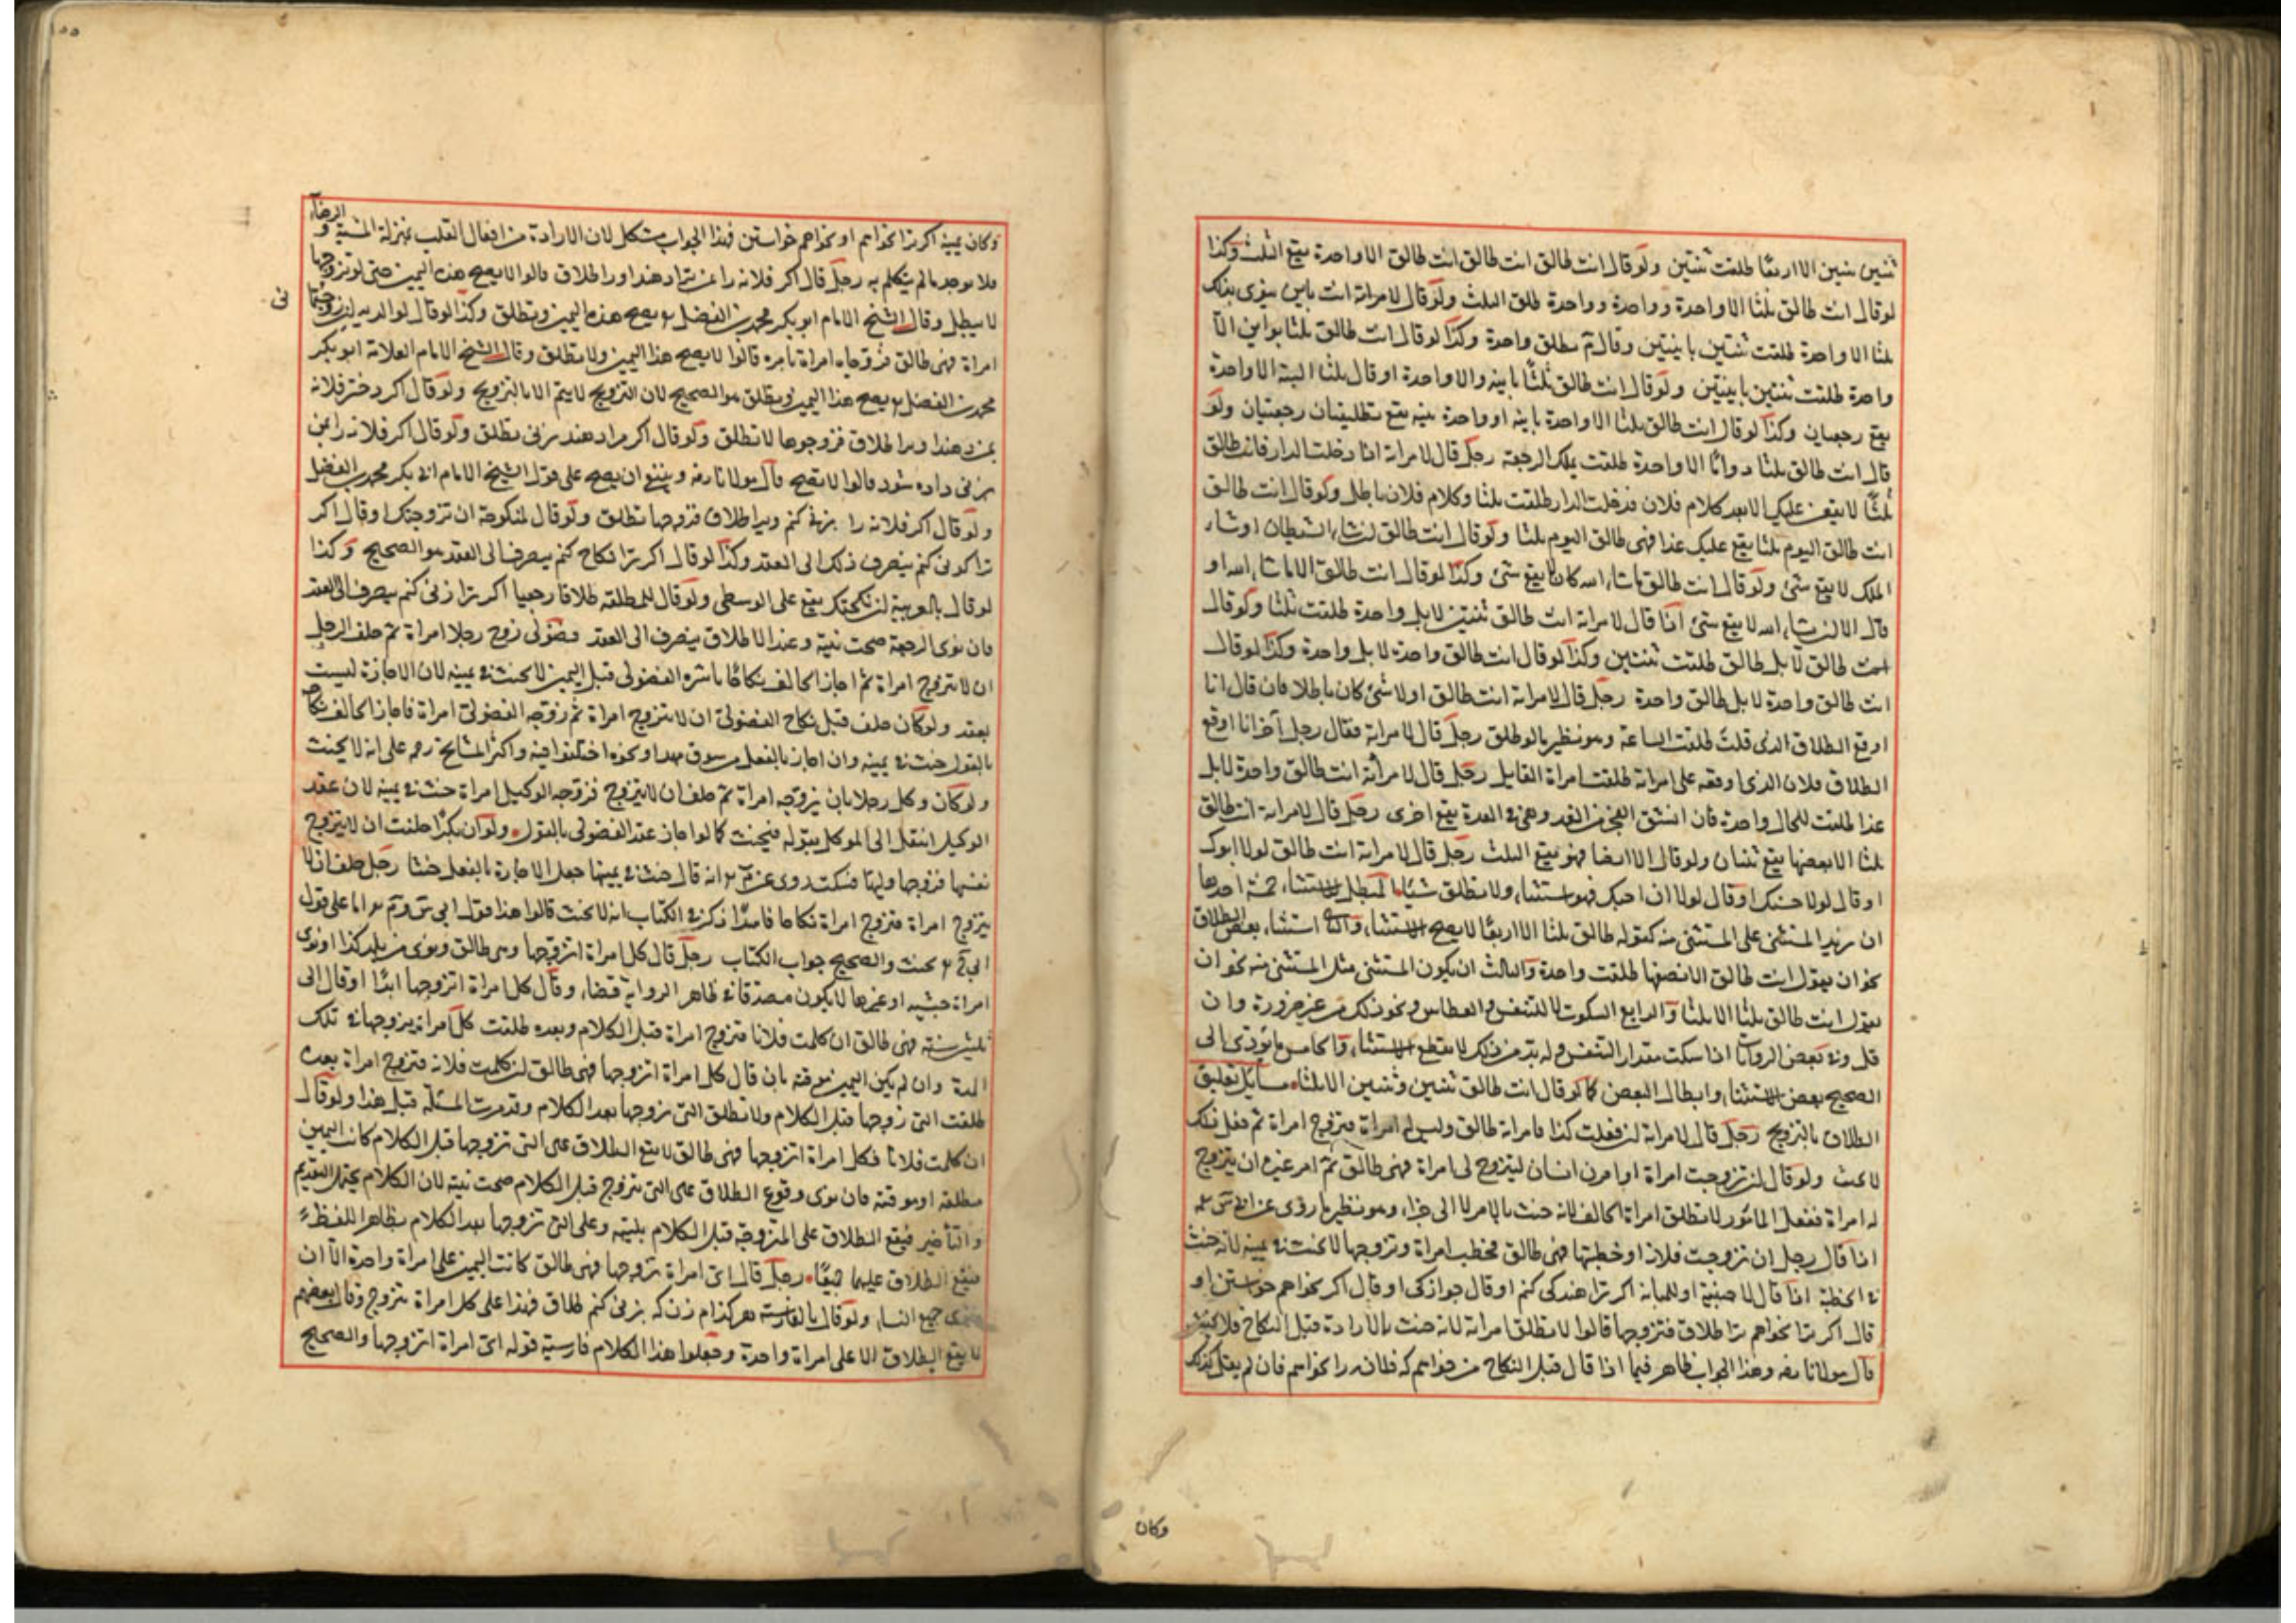 ثنتين ثنتين الا اربعا طلقت ثنتين ولو قال انت طالق انت طالق انت طالق الا واحدة يقع الثلث وكذا
لو قال انت طالق ثلثا الا واحدة وواحدة وواحدة طلق الثلث ولو قال لامراته انت باين ينوى بذلك
ثلثا الا واحدة طلقت ثنتين باينتين وقال م تطلق واحدة وكذا لو قال انت طالق ثلثا بواين الا
واحدة طلقت ثنتين باينتين ولو قال انت طالق ثلثا باينة والا واحدة او قال ثلثا البتة الا واحدة
يقع رجعيان وكذا لو قال انت طالق ثلثا الا واحدة باينة او واحدة بتة يقع تطليقتان رجعيتان ولو
قال انت طالق ثلثا الا واحدة طلقت يملك الرجعة رجل قال لامراته اذا دخلت الدار فانت طالق
ثلثا لا يقعن عليك الا بعد كلام فلان فدخلت الدار طلقت ثلثا وكلام فلان باطل ولو قال انت طالق
انت طالق اليوم ثلثا يقع عليك غدا فهى طالق اليوم ثلثا ولو قال انت طالق ان شاء الشيطان او شاء
الملك لا يقع شئ ولو قال انت طالق ما شاء الله كان لا يقع شئ وكذا لو قال انت طالق الا ما شاء الله او
قال الا ان شاء الله لا يقع شئ اذا قال لامراته انت طالق ثنتين لا بل واحدة طلقت ثلثا ولو قال
انت طالق لا بل طالق طلقت ثنتين وكذا لو قال انت طالق واحدة لا بل واحدة وكذا لو قال
انت طالق واحدة لا بل طالق واحدة رجل قال لامراته انت طالق او لا شئ كان باطلا فان قال انا
اوقع الطلاق الذى قلت طلقت الساعة وهو نظير ما لو طلق رجل قال لامراته فقال رجل آخر انا اوقع
الطلاق فلان الذى اوقعه على امراته طلقت امراة القايل رجل قال لامرأته انت طالق واحدة لا بل
غدا طلقت للحال واحدة فان انشق الفجر من الغد وهى فى العدة يقع اخرى رجل قال لامراته انت طالق
ثلثا الا بعضها يقع ثنتان ولو قال الا انصافها فهو يقع الثلث رجل قال لامراته انت طالق لولا ابوك
او قال لولا حسنك او قال لولا انى احبك فهو استثناء ولا تطلق شيئا المبطل للاستثناء خمسة احدها
ان يزيد المستثنى على المستثنى منه كقوله طالق ثلثا الا اربعا لا يصح الاستثناء والثانى استثناء بعض الطلاق
نحو ان يقول انت طالق الا نصفها طلقت واحدة والثالث ان يكون المستثنى مثل المستثنى منه نحو ان
يقول انت طالق ثلثا الا ثلثا والرابع السكوت لا للتنفس والعطاس ونحو ذلك من غير ضرورة وان
قل وفى بعض الروايات اذا سكت مقدار التنفس وله بد من ذلك لا يقطع الاستثناء والخامس ما يؤدى الى
الصحيح بعض الاستثناء وابطال البعض كما لو قال انت طالق ثنتين وثنتين الا ثلثا مسايل تعليق
الطلاق بالتزويج رجل قال لامراته ان فعلت كذا فامراته طالق وليس له امراة فتزوج امراة ثم فعل ذلك
لا يحنث ولو قال ان تزوجت امراة او امرت انسان ليتزوج لى امراة فهى طالق ثم امر غيره ان يتزوج
له امراة ففعل المأمور لا تطلق امراة الحالف لانه حنث بالامر لا الى جزاء وهو نظير ما روى عن ابى س رحمه
اذا قال رجل ان تزوجت فلانة او خطبتها فهى طالق فخطب امراة وتزوجها لا يحنث فى يمينه لانه حنث
فى الخطبة اذا قال لاجنبية او للمبانة اكر ترا هند كى كنم او قال جوازكى او قال اكر بخواهم خواستن او
قال اكر ترا بخواهم ترا طلاق فتزوجها قالوا لا تطلق امراته لانه حنث بالارادة قبل النكاح فلا يحنث
قال مولانا رضه وهذا الجواب ظاهر فيما اذا قال قبل النكاح من خواهم كه فلانه را بخواهم فان لم يقل كذلك
وكان
١٥٥
وكان يمينه اكر ترا بخواهم او بخواهم خواستن فهذا الجواب مشكل لان الارادة من افعال القلب بمنزلة المشية و الرضاء
فلا يوجد ما لم يتكلم به رجل قال اكر فلانه را بمن بزنى دهند او را طلاق قالوا لا يصح هذه اليمين حتى لو تزوجها
لا يبطل وقال الشيخ الامام ابو بكر محمد بن الفضل ر يصح هذه اليمين وتطلق وكذا لو قال لوالديه ان زوجتمانى
امراة فهى طالق فزوجاه امراة بامره قالوا لا يصح هذا اليمين ولا تطلق وقال الشيخ الامام العلامة ابو بكر
محمد بن الفضل ر يصح هذا اليمين وتطلق هو الصحيح لان التزويج لا يتم الا بالتزويج ولو قال اكر دختر فلانه
بمن دهند او را طلاق فزوجوها لا تطلق ولو قال اكر مرا دهند بزنى تطلق ولو قال اكر فلانه را بمن
بزنى داده شود قالوا لا يصح قال مولانا رضه وينبغى ان يصح على قول الشيخ الامام ابى بكر محمد بن الفضل
ولو قال اكر فلانه را بزنى كنم ويرا طلاق فتزوجها تطلق ولو قال لمنكوحته ان تزوجتك او قال اكر
ترا كو نى كنم ينصرف ذلك الى العقد وكذا لو قال اكر ترا نكاح كنم ينصرف الى العقد هو الصحيح وكذا
لو قال بالعربية ان نكحتك يقع على الوطى ولو قال للمطلقة طلاقا رجعيا اكر ترا زنى كنم ينصرف الى العقد
فان نوى الرجعة صحت نيته وعند الاطلاق ينصرف الى العقد فضولى زوج رجلا امراة ثم حلف الرجل
ان لا يتزوج امراة ثم اجاز الحالف نكاحا باشره الفضولى قبل اليمين لا يحنث فى يمينه لان الاجازة ليست
بعقد ولو كان حلف قبل نكاح الفضولى ان لا يتزوج امراة ثم زوجه الفضولى امراة فاجاز الحالف نكاحه
بالقول حنث فى يمينه وان اجاز بالفعل من سوق مهر او نحوه اختلفوا فيه واكثر المشايخ رحمه على انه لا يحنث
ولو كان وكل رجلا بان يزوجه امراة ثم حلف ان لا يتزوج فزوجه الوكيل امراة حنث فى يمينه لان عقد
الوكيل انتقل الى الموكل بقوله فيحنث كما لو اجاز عقد الفضولى بالقول ولو ان بكرا حلفت ان لا يتزوج
نفسها فزوجها وليها فسكتت روى عن م ر انه قال حنث فى يمينها جعل الاجازة بالفعل حنثا رجل حلف ان لا
يتزوج امراة فتزوج امراة نكاحا فاسدا ذكر فى الكتاب انه لا يحنث قالوا هذا قول ابى س وم ر اما على قول
ابى ح ر يحنث والصحيح جواب الكتاب رجل قال كل امراة اتزوجها وهى طالق ونوى من بلد كذا او نوى
امراة حبشية او غيرها لا يكون مصدقا فى ظاهر الرواية قضاء وقال كل امراة اتزوجها ابدا او قال الى
ثلثين سنة فهى طالق ان كلمت فلانا فتزوج امراة قبل الكلام وبعده طلقت كل امراة يتزوجها فى تلك
المدة وان لم يكن اليمين موقتة بان قال كل امراة اتزوجها فهى طالق ان كلمت فلانة فتزوج امراة بعده
طلقت التى تزوجها قبل الكلام ولا تطلق التى تزوجها بعد الكلام وقد مرت المسئلة قبل هذا ولو قال
ان كلمت فلانا فكل امراة اتزوجها فهى طالق لا يقع الطلاق على التى تزوجها قبل الكلام كانت اليمين
مطلقة او موقتة فان نوى وقوع الطلاق على التى تتزوج قبل الكلام صحت نيته لان الكلام يحتمل التقديم
والتأخير فيقع الطلاق على المتزوجة قبل الكلام بنيته وعلى التى تزوجها بعد الكلام بظاهر اللفظ
فيقع الطلاق عليهما جميعا رجل قال اى امراة تزوجها فهى طالق كانت اليمين على امراة واحدة الا ان
ينوى جميع النساء ولو قال بالفارسية هر كدام زن كه بزنى كنم طلاق فهذا على كل امراة تتزوج وقال بعضهم
لا يقع الطلاق الا على امراة واحدة وجعلوا هذا الكلام فارسية قوله اى امراة اتزوجها والصحيح